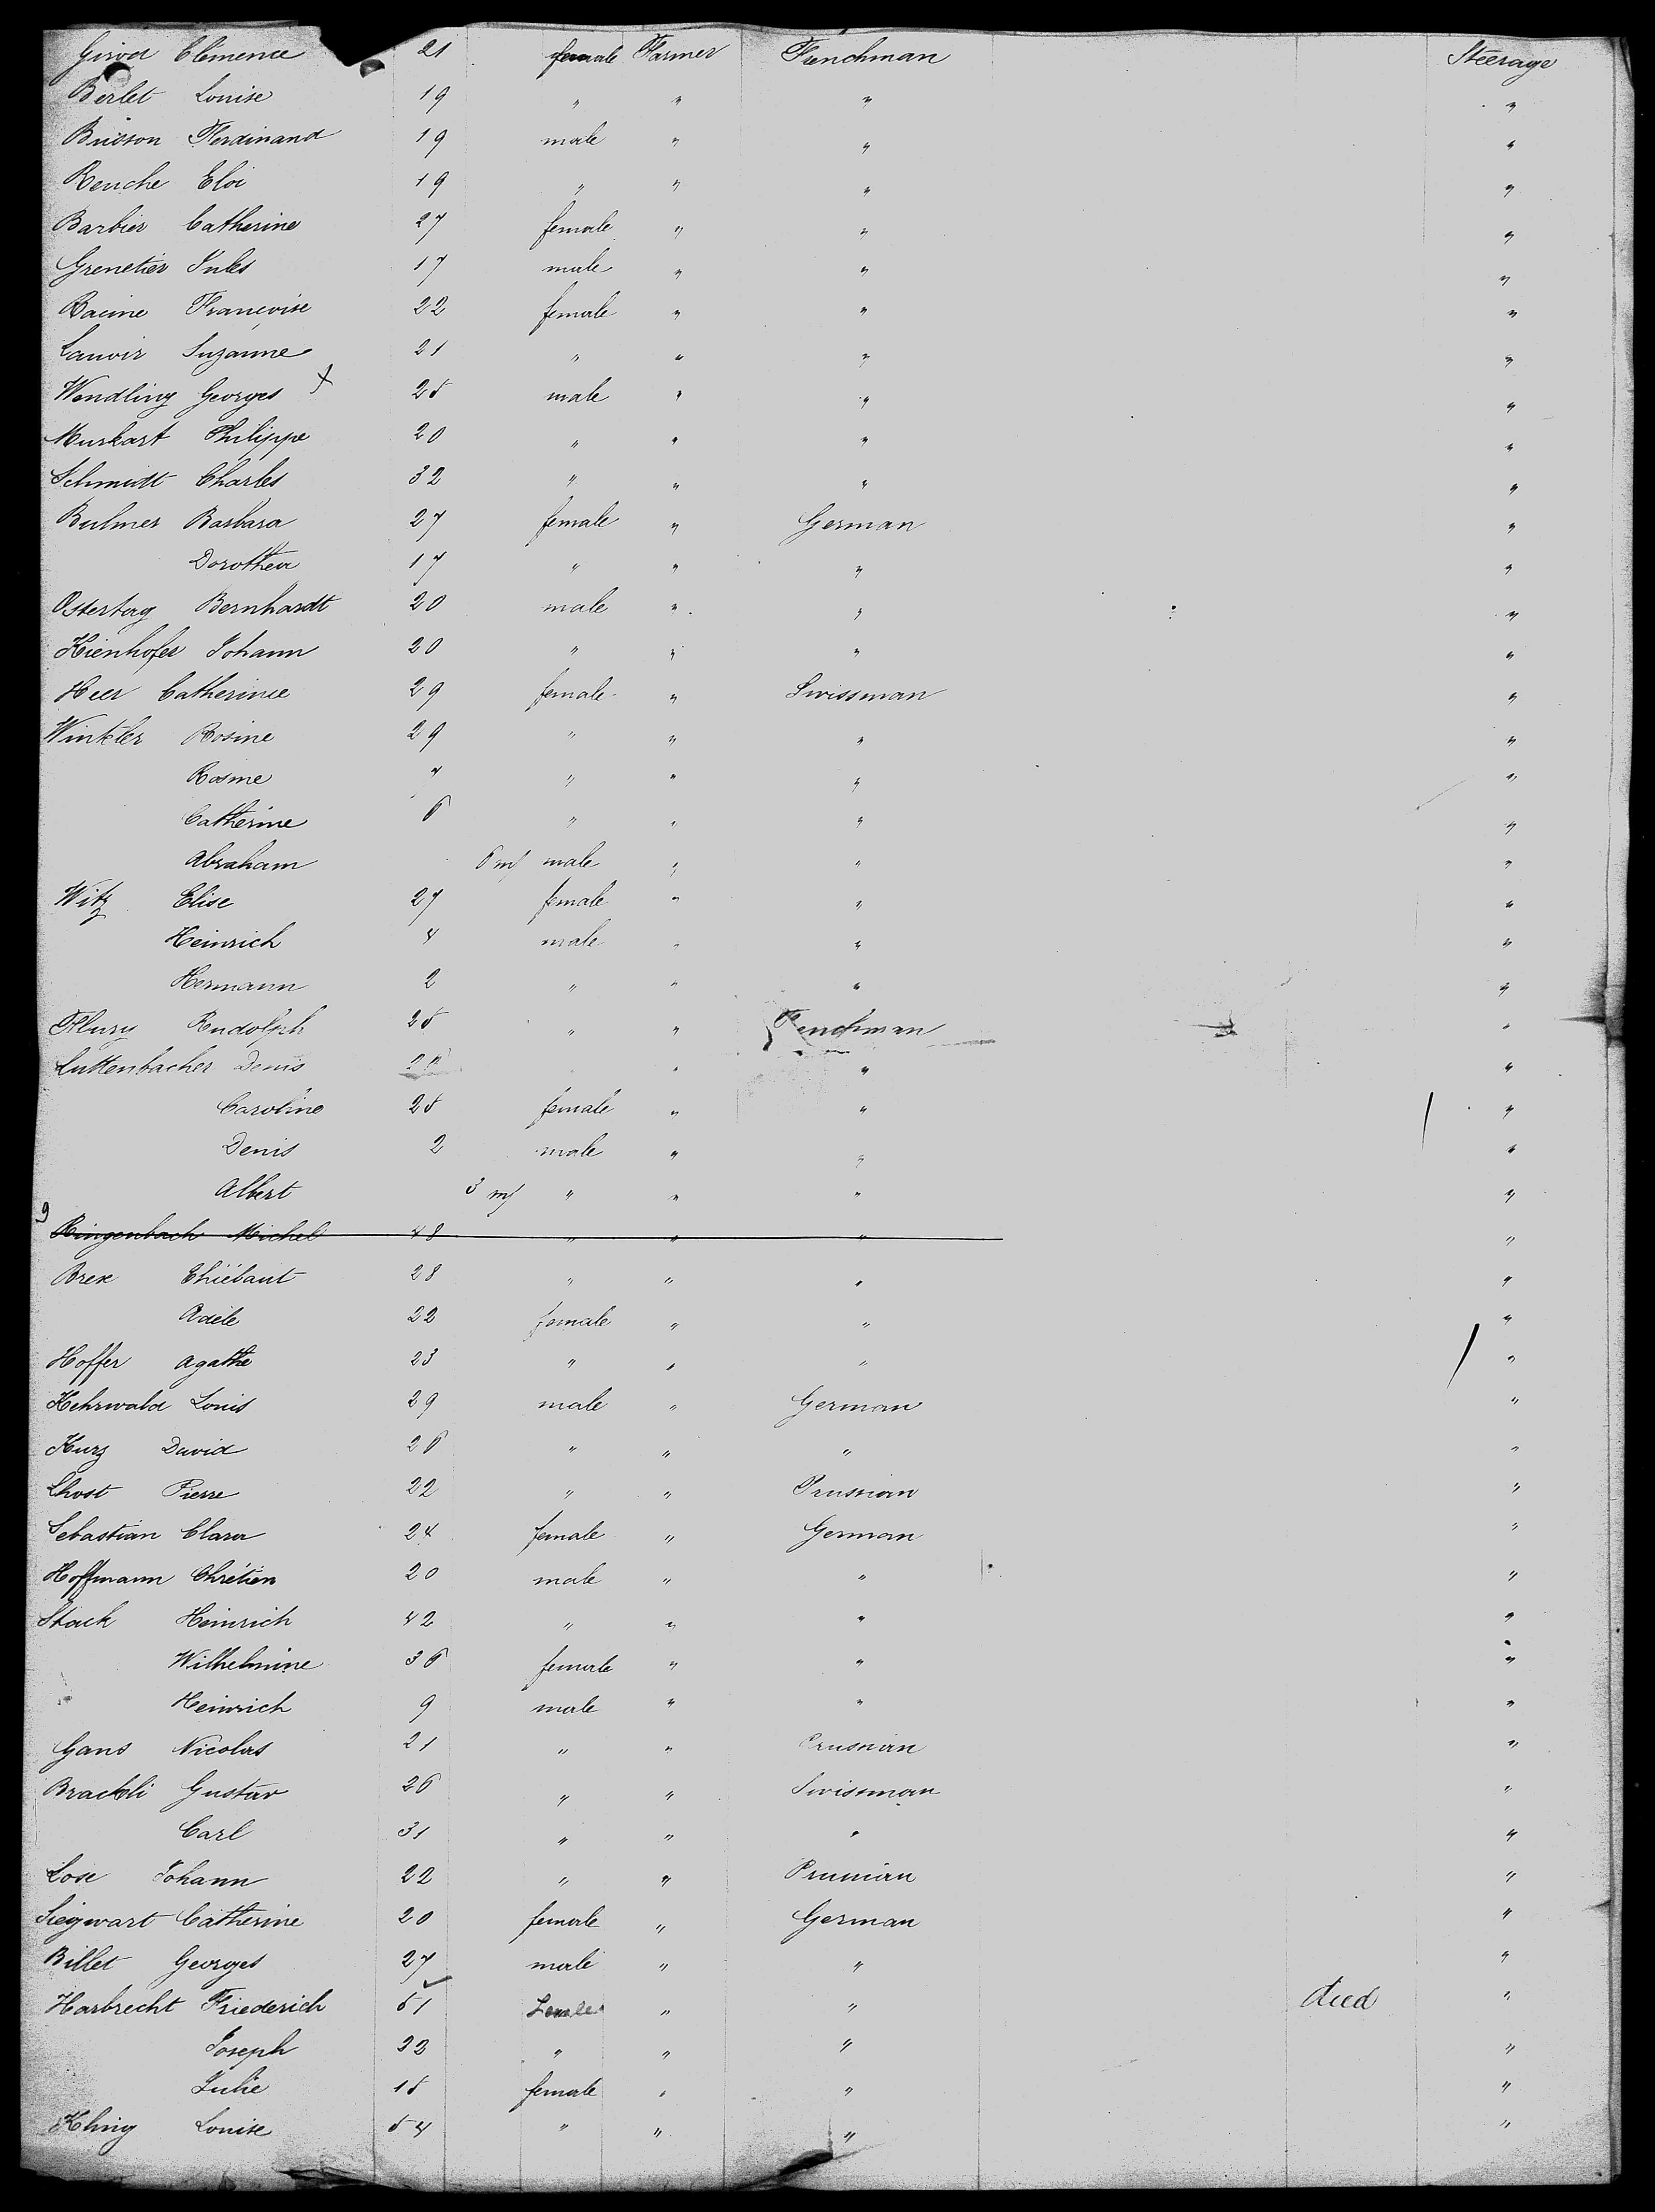 Girod Clémence 21 female Farmer Frenchman Steerage
Berlet Louise 19 " " " "
Buisson Ferdinand 19 male " " "
Renche Eloi 19 " " " "
Barbier Catherine 27 female " " "
Grenetier Jules 17 male " " "
Racine Francoise 22 female " " "
Lanoir Suzanne 21 " " " "
Wendling Georges x 25 male " " "
Murkart Philippe 20 " " " "
Schmidt Charles 32 " " " "
Bulmer Barbara 27 female " German "
Dorothea 17 " " " "
Ostertag Bernhardt 20 male " " "
Kienhofer Johann 20 " " " "
Heer Catherine 29 female " Swissman "
Winkler Rosine 29 " " " "
Rosine 7 " " " "
Catherine 6 " " " "
Abraham 6 m/ male " " "
Witz Elise 27 female " " "
Heinrich 4 male " " "
Hermann 2 " " " "
Flury Rudolph 25 " " Frenchman "
Luttenbacher Denis " " "
Caroline 25 female " " "
Denis 2 male " " "
Albert 3 m/ " " " "
9 Ringenbach Michel 48 " " " "
Brex Thiébaut 28 " " " "
Adele 22 female " " "
Hoffer Agathe 23 " " " "
Kehrwald Louis 29 male " German "
Kurz David 26 " " " "
Lhost Pierre 22 " " Prussian "
Sebastian Clara 24 female " German "
Hoffmann Chrétien 20 male " " "
Stack Heinrich 42 " " " "
Wilhelmine 36 female " " "
Heinrich 9 male " " "
Gans Nicolas 21 " " Prussian "
Brackli Gustav 26 " " Swissman "
Carl 31 " " " "
Lose Johann 22 " " Prussian "
Siegwart Catherine 20 female " German "
Billet Georges 27 male " " "
Harbrecht Friederich 51 " " died "
Joseph 22 " " " "
Julie 15 female " " "
Kling Louise 54 " " " "